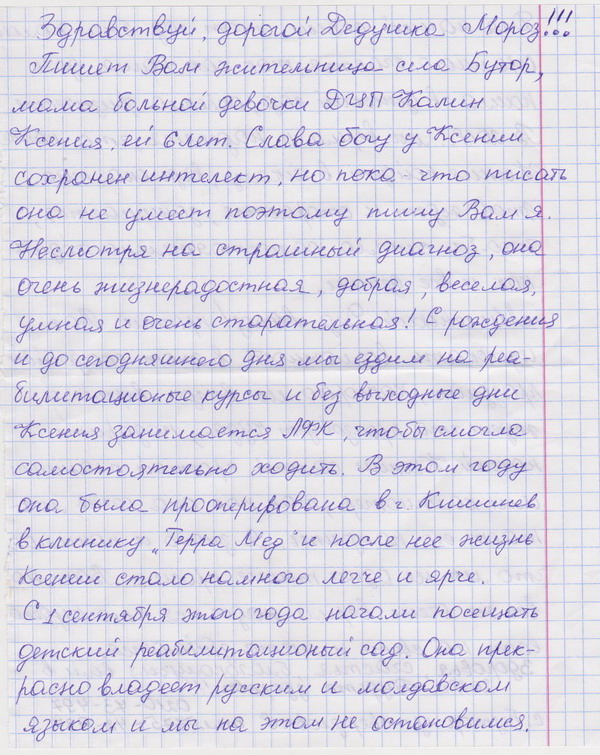 Здравствуй, дорогой Дедушка Мороз!!!...
Пишет Вам жительница села Бутор,
мама больной девочки ДЦП Калин
Ксения, ей 6 лет. Слава богу у Ксении
сохранен интелект, но пока-что писать
она не умеет поэтому пишу Вам я.
Несмотря на страшный диагноз, она
очень жизнерадостная, добрая, веселая,
умная и очень старательная! С рождения
и до сегодняшнего дня мы ездим на реа-
билитационые курсы и без выходные дни
Ксения занимается ЛФК, чтобы смогла
самостоятельно ходить. В этом году
она была прооперирована в г. Кишинев
в клинику „Терра Мед" и после нее жизнь
Ксении стало намного легче и ярче.
С 1 сентября этого года начали посещать
детский реабилитационый сад. Она прек-
расно владеет русским и молдавском
языком и мы на этом не остановимся.